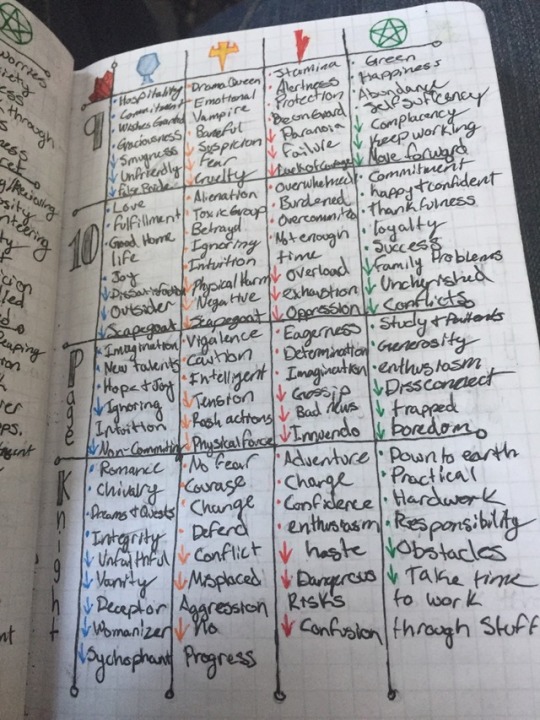 9
Hospitality
Commitment
Wishes Granted
Graciousness
Smugness
Unfriendly
False Pride
Drama Queen
Emotional
Vampire
Baneful
Suspicion
Fear
Cruelty
Stamina
Alertness
Protection
Be on Guard
Paranoia
Failure
Lack of Courage
Green
Happiness
Abundance
Self Sufficency
Complacency
Keep working
Move forward
10
Love
Fulfillment
Good Home
life
Joy
Dissatisfaction
Outsider
Scapegoat
Alienation
Toxic Group
Betrayd
Ignoring
Intuition
Physical Harm
Negative
Scapegoat
Overwhelmed
Burdened
Overcommited
Not enough
time
Overload
Exhaustion
Oppression
Commitment
happy & confident
Thankfulness
loyalty
Success
Family Problems
Uncherished
Conflicts
Page
Imagination
New talents
Hope & Joy
Ignoring
Intuition
Non-Commiting
Vigalence
Caution
Intelligent
Tension
Rash actions
Physical Force
Eagerness
Determination
Imagination
Gossip
Bad news
Innuendo
Study &
Generosity
enthusiasm
Dissconnect
trapped
boredom
Knight
Romance
Chivalry
Dreams & Quests
Integrity
Unfaithful
Vanity
Deceptor
Womanizer
Sychophant
No fear
Courage
Change
Defend
Conflict
Misplaced
Aggression
No
Progress
Adventure
Charge
Confidence
enthusiasm
haste
Dangerous
Risks
Confusion
Down to earth
Practical
Hardwork
Responsibility
Obstacles
Take time
to work
through Stuff